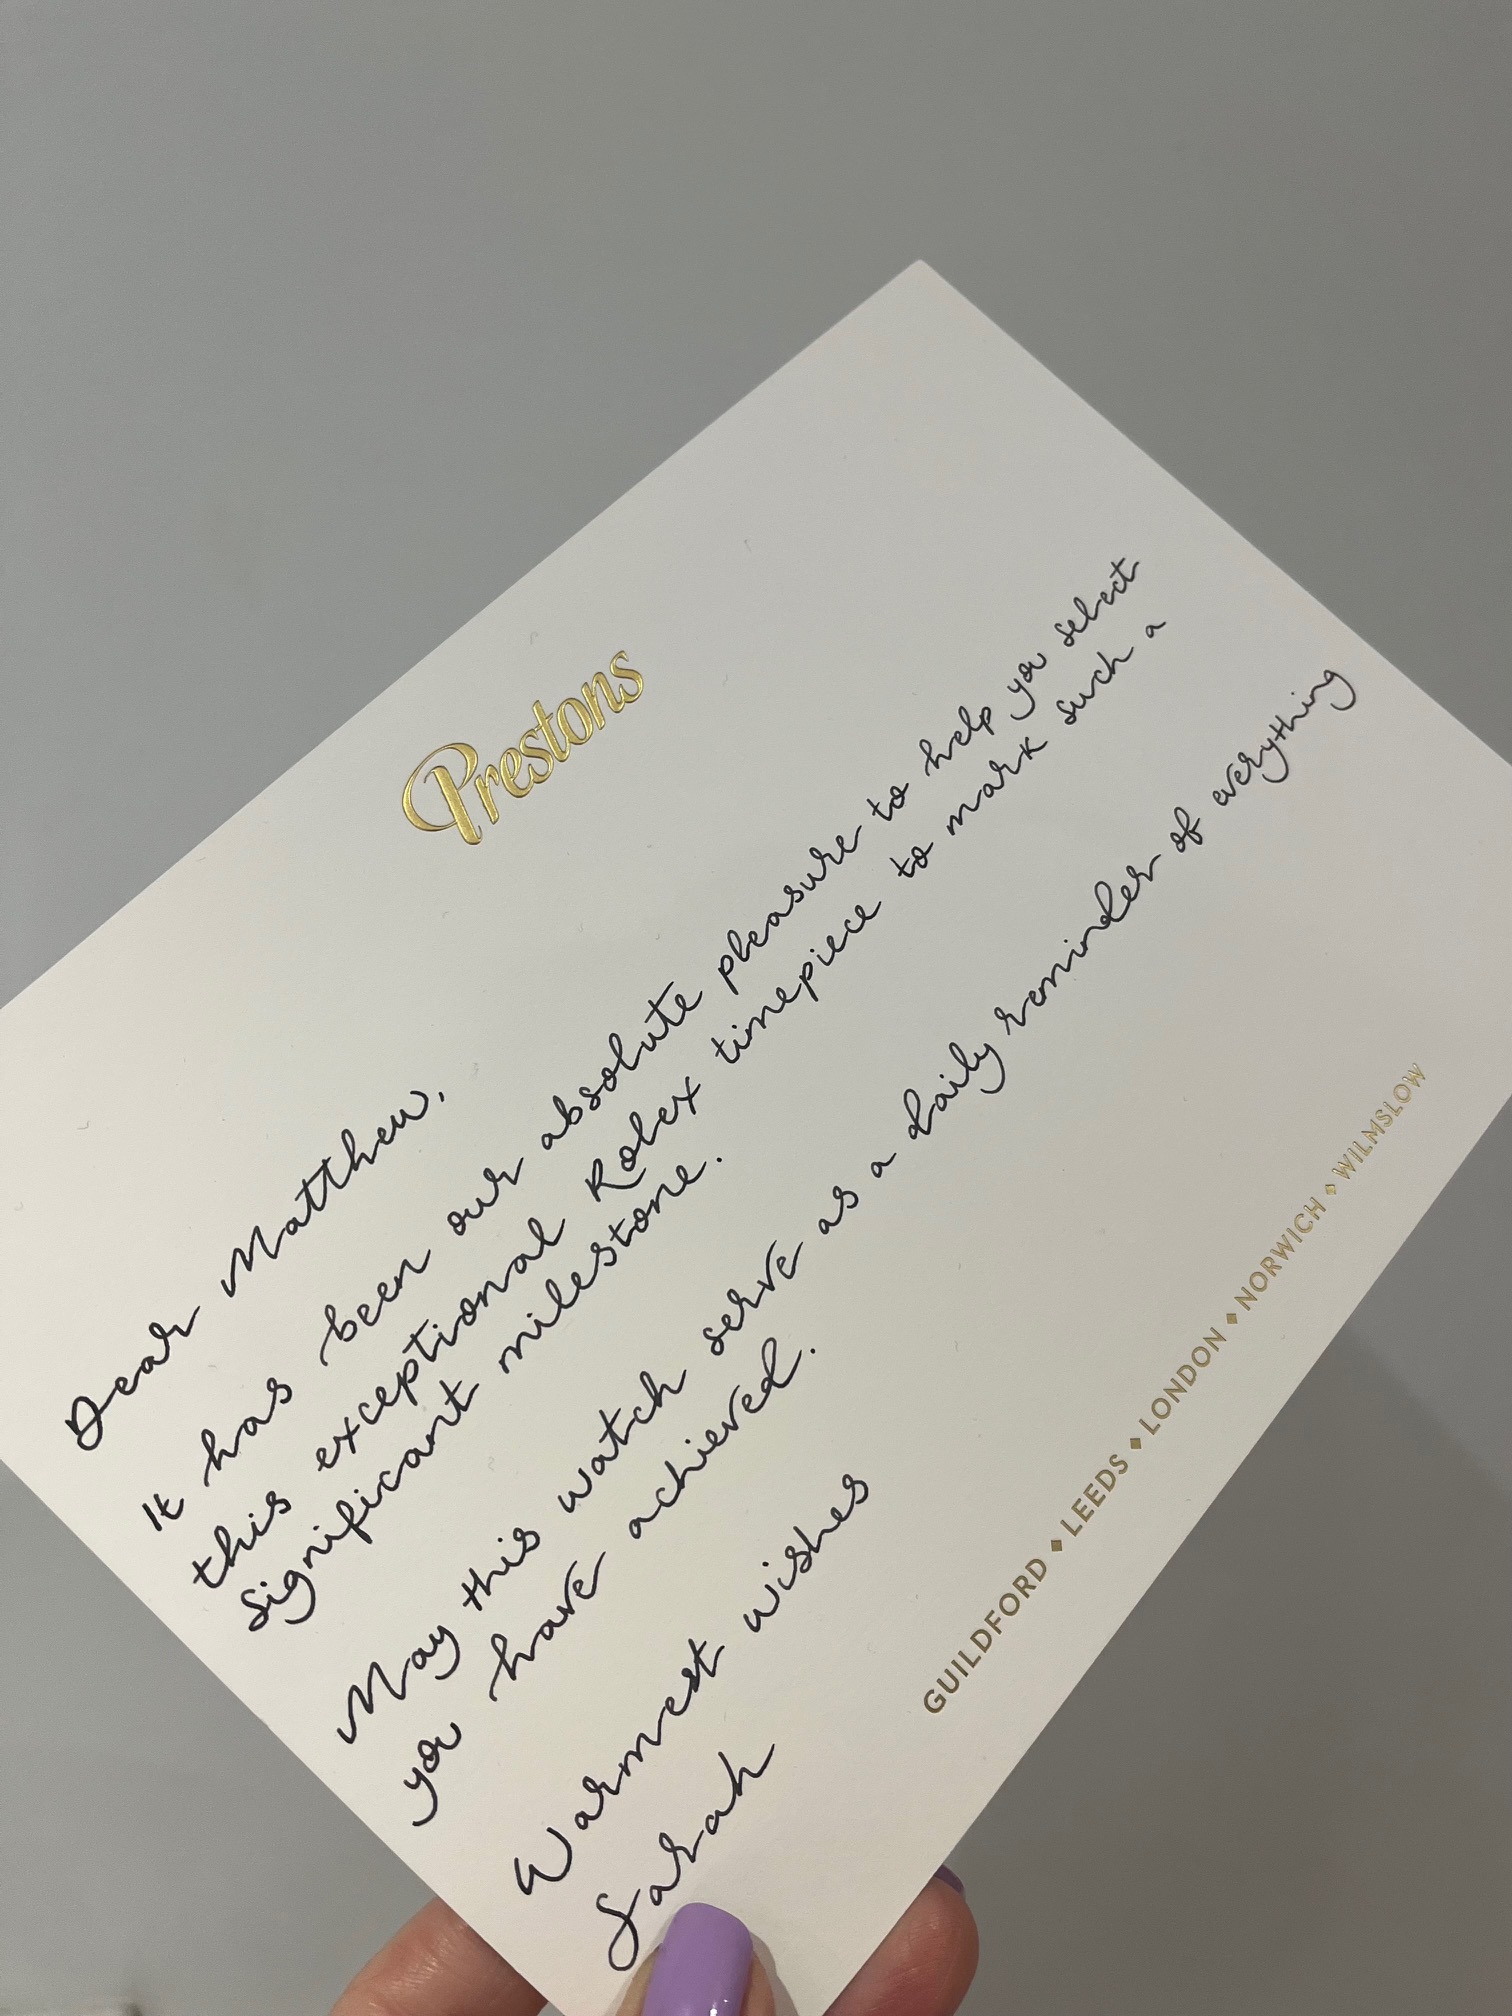 Prestons
Dear Matthew,
It has been our absolute pleasure to help you select
this exceptional Rolex timepiece to mark such a
significant milestone.
May this watch serve as a daily reminder of everything
you have achieved.
Warmest wishes
Sarah
GUILDFORD ◆ LEEDS ◆ LONDON ◆ NORWICH ◆ WILMSLOW